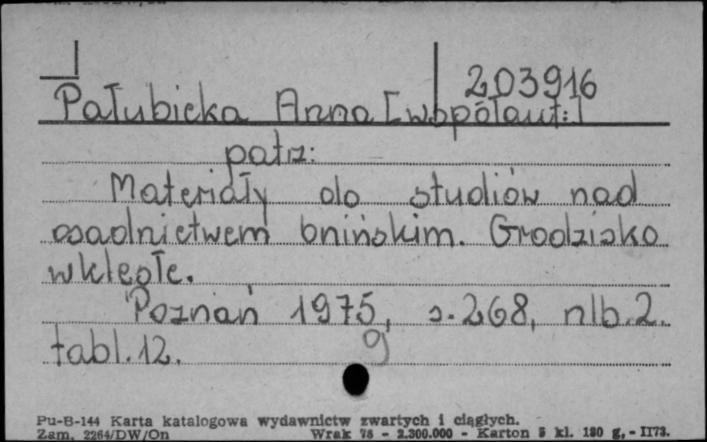 203916
Pałubicka Anna [współaut.]
patrz:
Materiały do studiów nad
osadnictwem bnińskim. Grodzisko
wklęsłe.
Poznań 1975, s. 268, nlb. 2.
tabl. 12.
g
Pu-B-144 Karta katalogowa wydawnictw zwartych i ciągłych.
Zam. 2264/DW/On Wrak 78 - 2.300.000 - Karton 5 kl. 180 g, - II73.